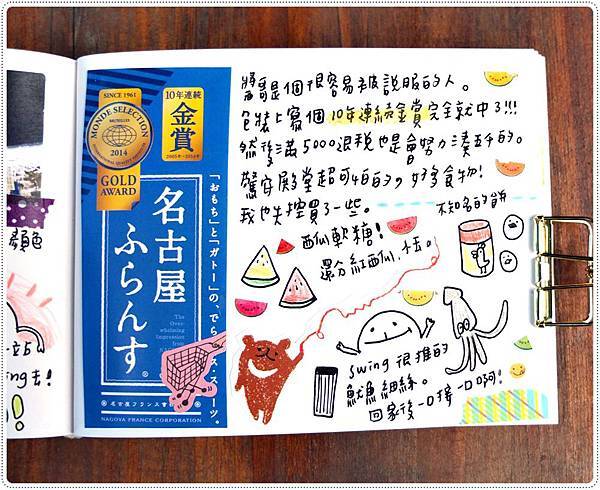 SINCE 1961
MONDE SELECTION
BRUXELLES
2014
GOLD
AWARD
10年連続
金賞
2005年-2014年
「おもち」と「ガトー」の、でら
ス・スーツ。
名古屋
ふらんす
®
The
Over-
whelming
Impression
from
名古屋フランス
NAGOYA FRANCE CORPORATION
顏色
ng去!
是個很容易被說服的人。
包裝上寫個10年連続金賞完全就中了!!!
然後滿5000退稅也是會努力湊到的。
驚安殿堂超可怕的,好多食物!
我也失控買了一些。
不知名的餅
西瓜軟糖!
還分紅西瓜,小玉。
swing很推的
魷魚細絲。
回家後一口接一口啊!